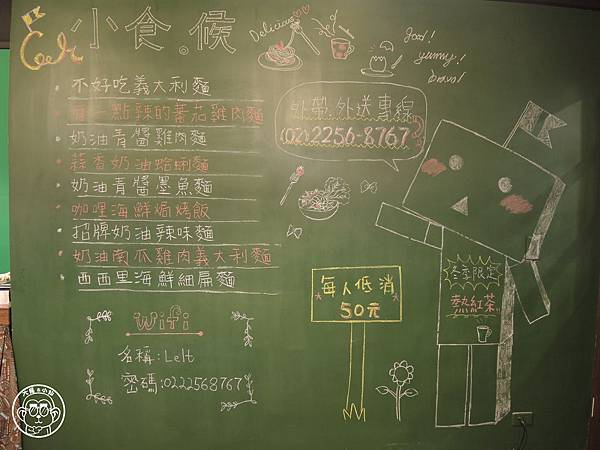 小食。候
Delicious
good!
yummy!
bravo!
不好吃義大利麵
有一點辣的蕃茄雞肉麵
奶油青醬雞肉麵
蒜香奶油蛤蜊麵
奶油青醬墨魚麵
咖哩海鮮焗烤飯
招牌奶油辣味麵
奶油南瓜雞肉義大利麵
西西里海鮮細扁麵
外帶.外送專線
(02)2256-8767
每人低消
50元
冬季限定
熱紅茶
wifi
名稱:Leit
密碼:0222568767
大麗&小猴